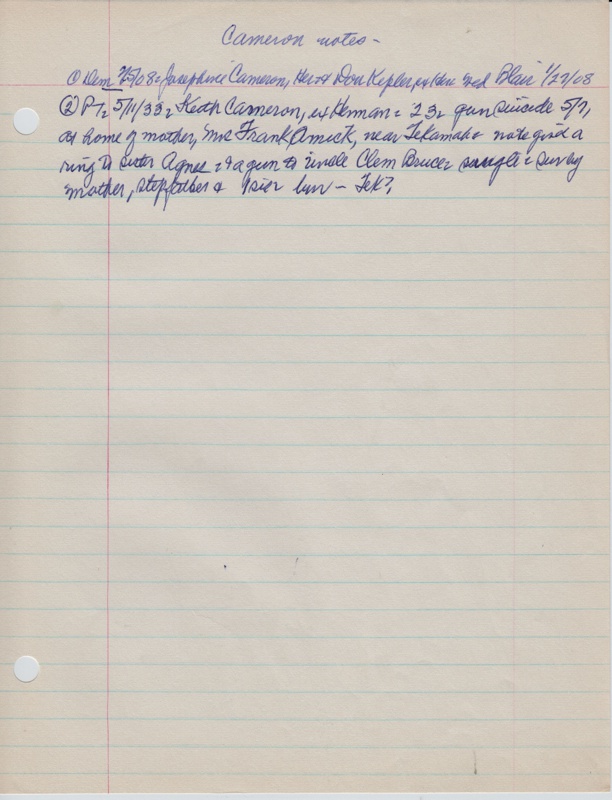 Cameron notes -
① Dem 2/5/08: Josephine Cameron, Her & Don Kepler, ex Her wed Blair 1/22/08
② PT: 5/11/33: Keith Cameron, ex Herman = 23, gun suicide 5/7,
at home of mother, Mrs Frank Amick, near Tekamah = note givd a
ring to sister Agnes = & a gun to uncle Clem Bruce = single = surv by
mother, stepfather & bur - Tek?,